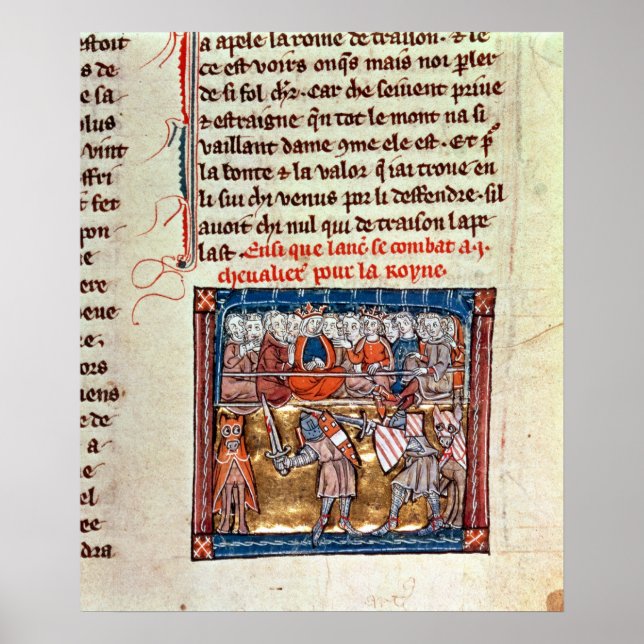 estoit
s de
e sa
plus
vint
ffri
t fet
pon-
ere
ieuz
ors
iens.
e de
a-
el
ee
dra
a apele la roine de traison. ⁊ le
ce est voirs onqs mais noi pler
de si fol chr̄. car che seiuent priue
⁊ estraigne qn̄ tot le mont na si
vaillant dame ꝯme ele est. Et p̄
la bonte ⁊ la valor q̄ iai troue en
li sui chi venus por li deffendre. sil
auoit chi nul qui de traison lape
last. Ensi que lanc̄. se combat a .j.
cheualier pour la Royne.